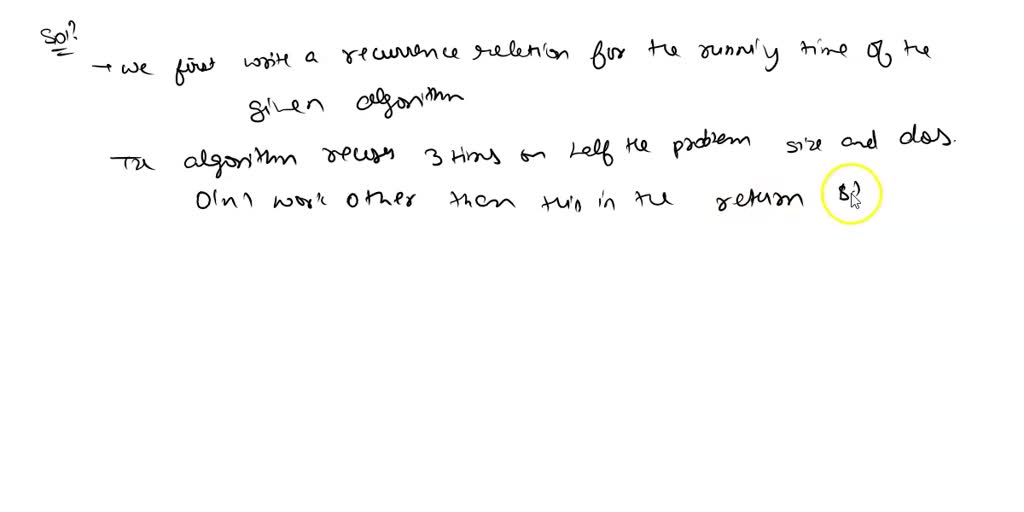 Sol?
→ we first write a recurrence relation for the running time of the
given algorithm
The algorithm recurses 3 times on half the problem size and does.
O(n) work other than this in the return